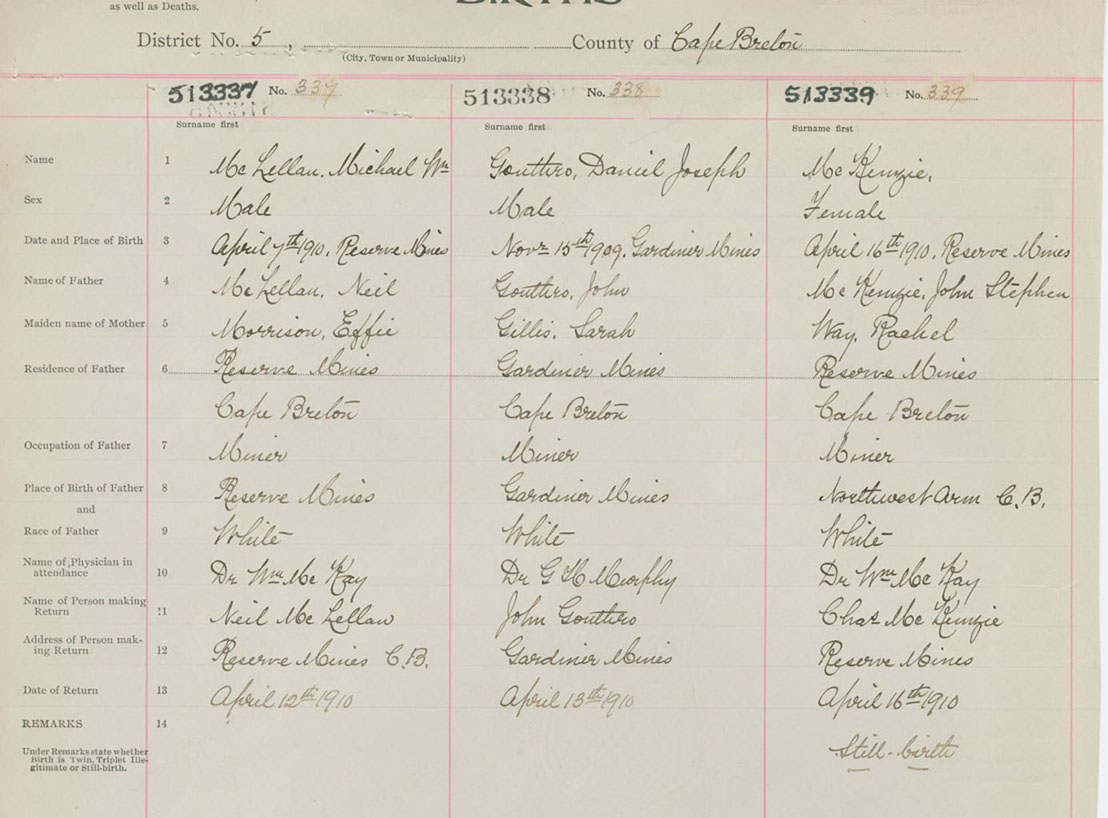 as well as Deaths.
BIRTHS
District No. 5, County of Cape Breton
(City, Town or Municipality)
513337 No. 337 513338 No. 338 513339 No. 339
Surname first Surname first Surname first
Name 1 Mc Lellan, Michael Wm Gouthro, Daniel Joseph Mc Kenzie,
Sex 2 Male Male Female
Date and Place of Birth 3 April 7th 1910, Reserve Mines Novr 15th 1909, Gardiner Mines April 16th 1910, Reserve Mines
Name of Father 4 Mc Lellan, Neil Gouthro, John Mc Kenzie, John Stephen
Maiden name of Mother 5 Morrison, Effie Gillis, Sarah Way, Rachel
Residence of Father 6 Reserve Mines Gardiner Mines Reserve Mines
Cape Breton Cape Breton Cape Breton
Occupation of Father 7 Miner Miner Miner
Place of Birth of Father 8 Reserve Mines Gardiner Mines Northwest Arm C.B.
and
Race of Father 9 White White White
Name of Physician in
attendance 10 Dr Wm Mc Kay Dr G H Murphy Dr Wm Mc Kay
Name of Person making
Return 11 Neil Mc Lellan John Gouthro Chas Mc Kenzie
Address of Person mak-
ing Return 12 Reserve Mines C.B. Gardiner Mines Reserve Mines
Date of Return 13 April 12th 1910 April 13th 1910 April 16th 1910
REMARKS 14
Under Remarks state whether
Birth is Twin, Triplet Ille-
gitimate or Still-birth.
Still-birth